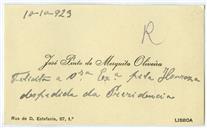 10-10-923
R
José Pinto de Mesquita Oliveira
Felicita a V.ª Ex.ª pela Honrosa
despedida da Presidencia
Rua de D. Estefania, 87, 1.º LISBOA